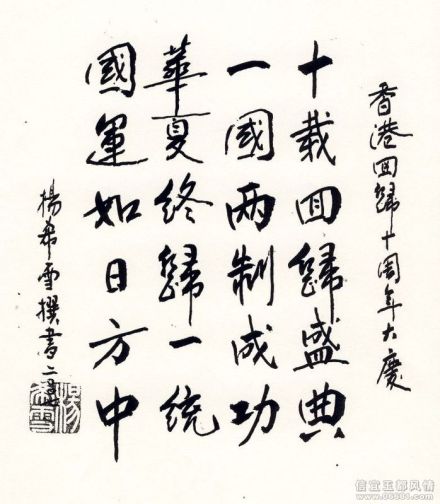 香港回歸十周年大慶
十載回歸盛典
一國两制成功
華夏終歸一统
國運如日方中
楊希雪撰書
楊希雪
信宜玉都风情
www.06681.com